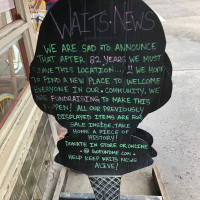 WAITS·NEWS
WE ARE SAD TO ANNOUNCE
THAT AFTER 82 YEARS WE MUST
LEAVE THIS LOCATION.... !! WE HOPE
TO FIND A NEW PLACE TO WELCOME
EVERYONE IN OUR COMMUNITY, WE
ARE FUNDRAISING TO MAKE THIS
HAPPEN! ALL OUR PREVIOUSLY
DISPLAYED ITEMS ARE FOR
SALE INSIDE, TAKE
HOME A PIECE OF
HISTORY!
DONATE IN STORE OR ONLINE
@ GOFUNDME.COM
HELP KEEP WAITS NEWS
ALIVE!